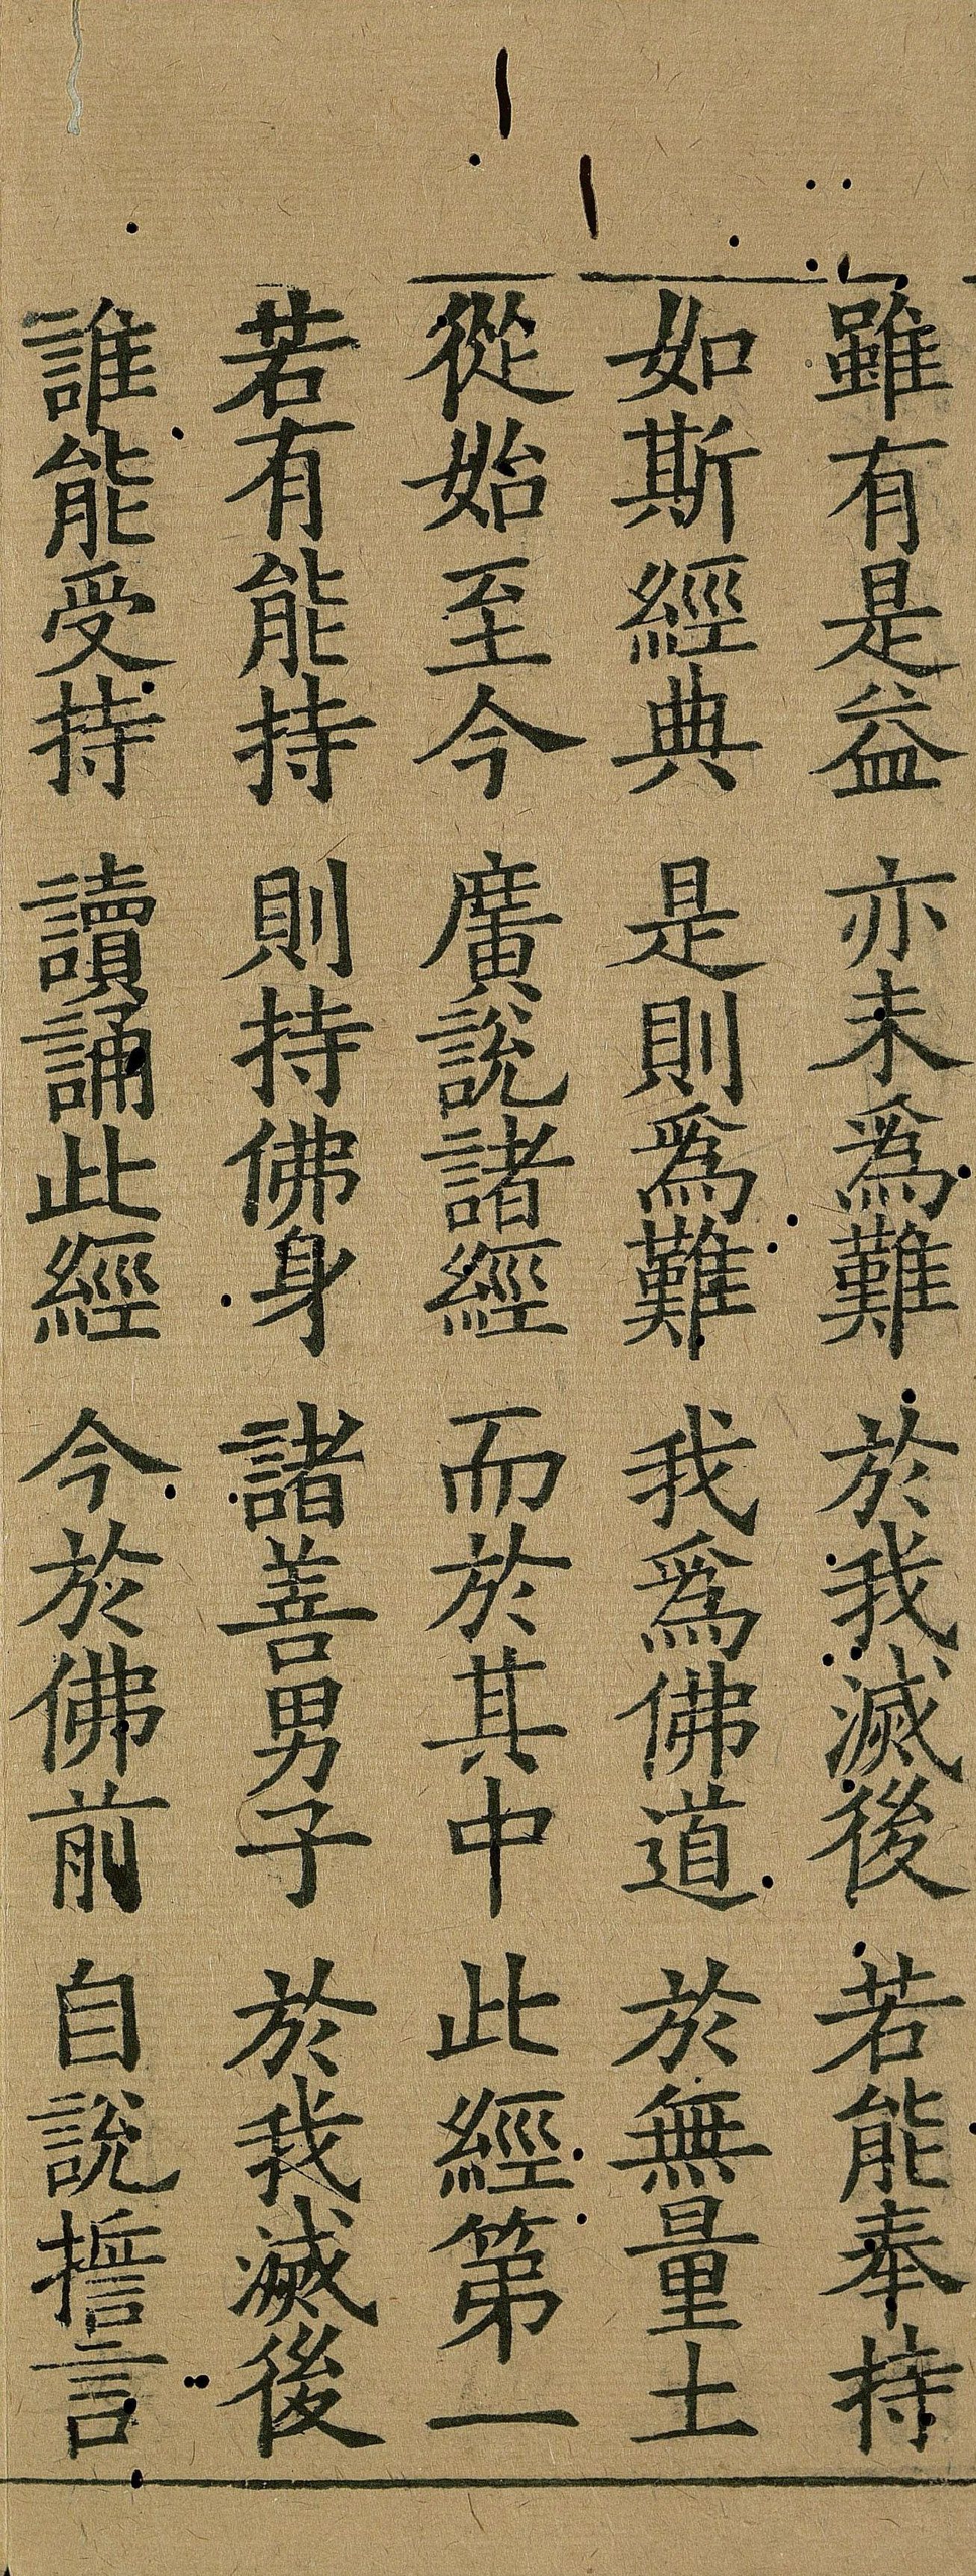 雖有是益　亦未爲難　於我滅後　若能奉持
如斯經典　是則爲難　我爲佛道　於無量土
從始至今　廣說諸經　而於其中　此經第一
若有能持　則持佛身　諸善男子　於我滅後
誰能受持　讀誦此經　今於佛前　自說誓言